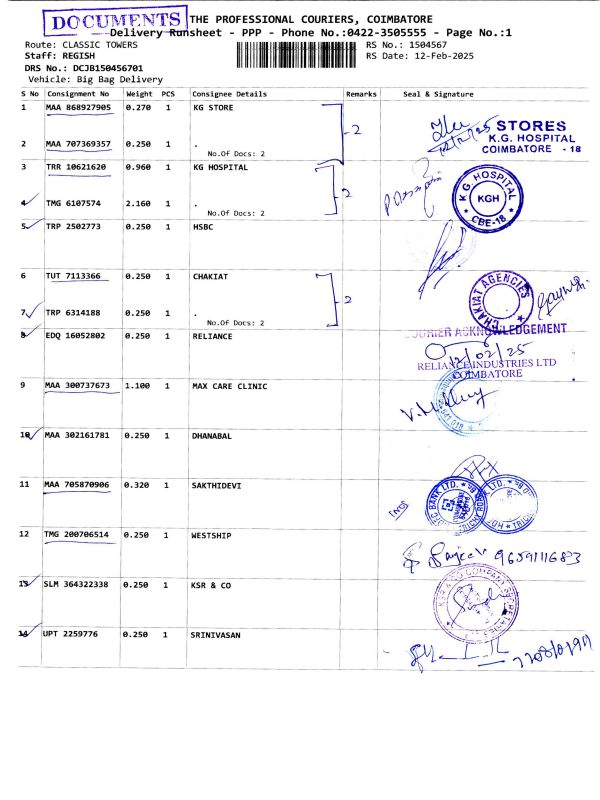 DOCUMENTS THE PROFESSIONAL COURIERS, COIMBATORE
Delivery Runsheet - PPP - Phone No.:0422-3505555 - Page No.:1
Route: CLASSIC TOWERS RS No.: 1504567
Staff: REGISH RS Date: 12-Feb-2025
DRS No.: DCJB150456701
Vehicle: Big Bag Delivery
S No Consignment No Weight PCS Consignee Details Remarks Seal & Signature
1 MAA 868927905 0.270 1 KG STORE
2
STORES
K.G. HOSPITAL
COIMBATORE - 18
12/02/25
2 MAA 707369357 0.250 1 .
No.Of Docs: 2
3 TRR 10621620 0.960 1 KG HOSPITAL
2
K.G. HOSPITAL
KGH
CBE-18
4 TMG 6107574 2.160 1 .
No.Of Docs: 2
5 TRP 2502773 0.250 1 HSBC
6 TUT 7113366 0.250 1 CHAKIAT
2
CHAKIAT AGENCIES
7 TRP 6314188 0.250 1 .
No.Of Docs: 2
8 EDQ 16052802 0.250 1 RELIANCE
COURIER ACKNOWLEDGEMENT
12/02/25
RELIANCE INDUSTRIES LTD
COIMBATORE
9 MAA 300737673 1.100 1 MAX CARE CLINIC
10 MAA 302161781 0.250 1 DHANABAL
11 MAA 705870906 0.320 1 SAKTHIDEVI
BANK LTD.
12 TMG 200706514 0.250 1 WESTSHIP
9659111683
13 SLM 364322338 0.250 1 KSR & CO
KSR & CO COMPANY SECRETARIES
14 UPT 2259776 0.250 1 SRINIVASAN